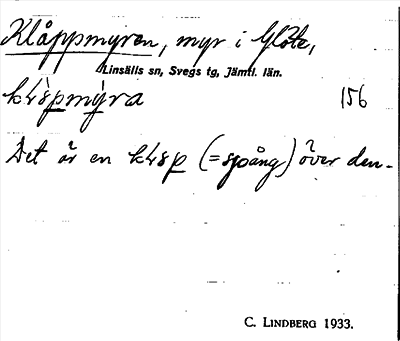 Klåppmyren, myr i Glöte,
Linsälls sn, Svegs tg, Jämtl. län.
156
Det är en (=spång) över den.
C. LINDBERG 1933.